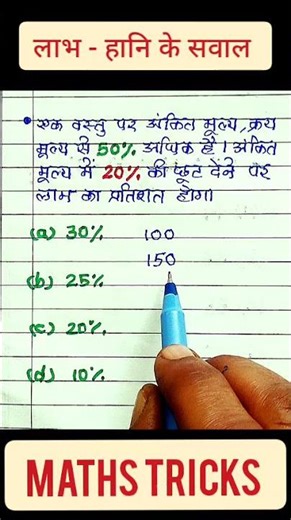 लाभ - हानि के सवाल
• एक वस्तु पर अंकित मूल्य, क्रय
मूल्य से 50% अधिक है। अंकित
मूल्य में 20% की छूट देने पर
लाभ का प्रतिशत होगा।
(a) 30% 100
150
(b) 25%
(c) 20%
(d) 10%
MATHS TRICKS